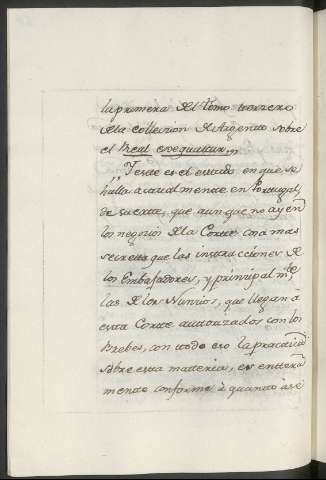 la primera del tomo tercero
dela collecion de Argento sobre
el Real exequatur,,
,, Y este es el estado en que se
halla actualmente en Portugal,
de suerte, que aunque no ay en
los negocios de la Corte cosa mas
secreta que las instrucciones de
los Embaxadores, y principal mte
las de los Nuncios, que llegan à
esta Corte autorizados con los
Brebes, con todo eso la practica
sobre esta materia, es entera
mente conforme à quanto a se